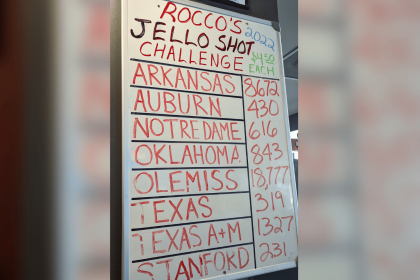 ROCCO'S 2022
JELLO SHOT
CHALLENGE $4.50 EACH
ARKANSAS 8672
AUBURN 430
NOTRE DAME 616
OKLAHOMA 843
OLE MISS 18,777
TEXAS 319
TEXAS A+M 1327
STANFORD 231